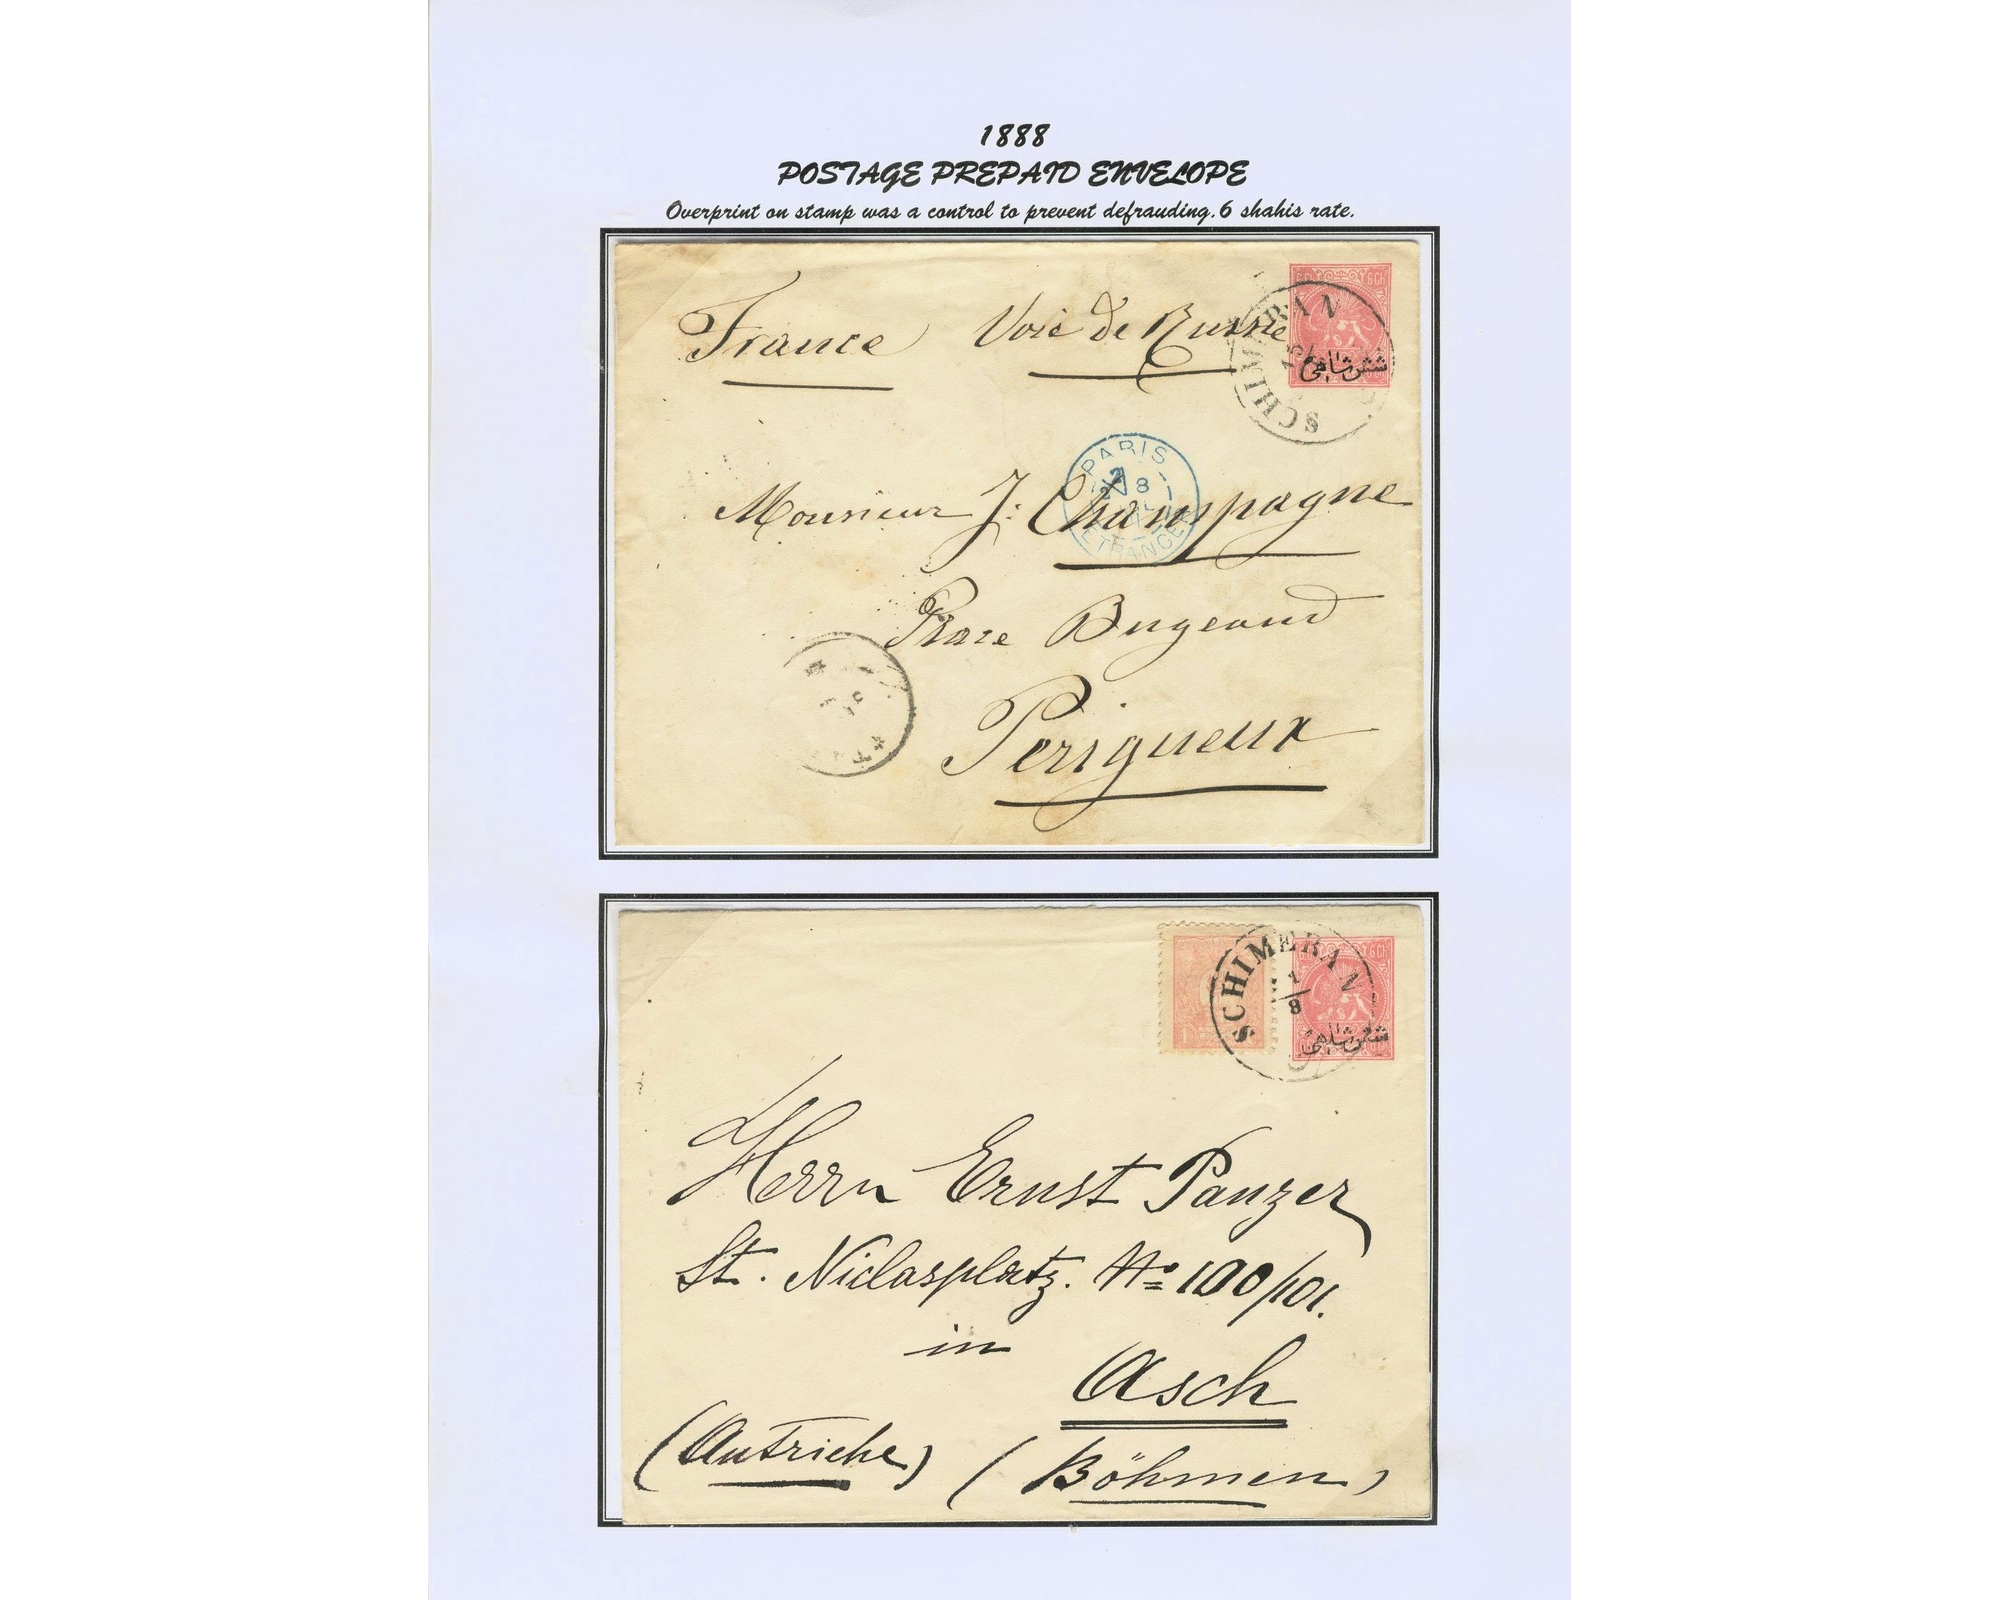 1888
POSTAGE PREPAID ENVELOPE
Overprint on stamp was a control to prevent defrauding. 6 shahis rate.
6 Ch
SCHIMERAN
شش شاهی
France Voie de Russie
PARIS
8
ETRANGER
Monsieur J: Champagne
Place Bugeaud
Perigueux
SCHIMERAN
1/8
6 Ch
شش شاهی
Herrn Ernst Panzer
St. Niclasplatz. No 100/101.
in
Asch
(Autriche) (Böhmen)